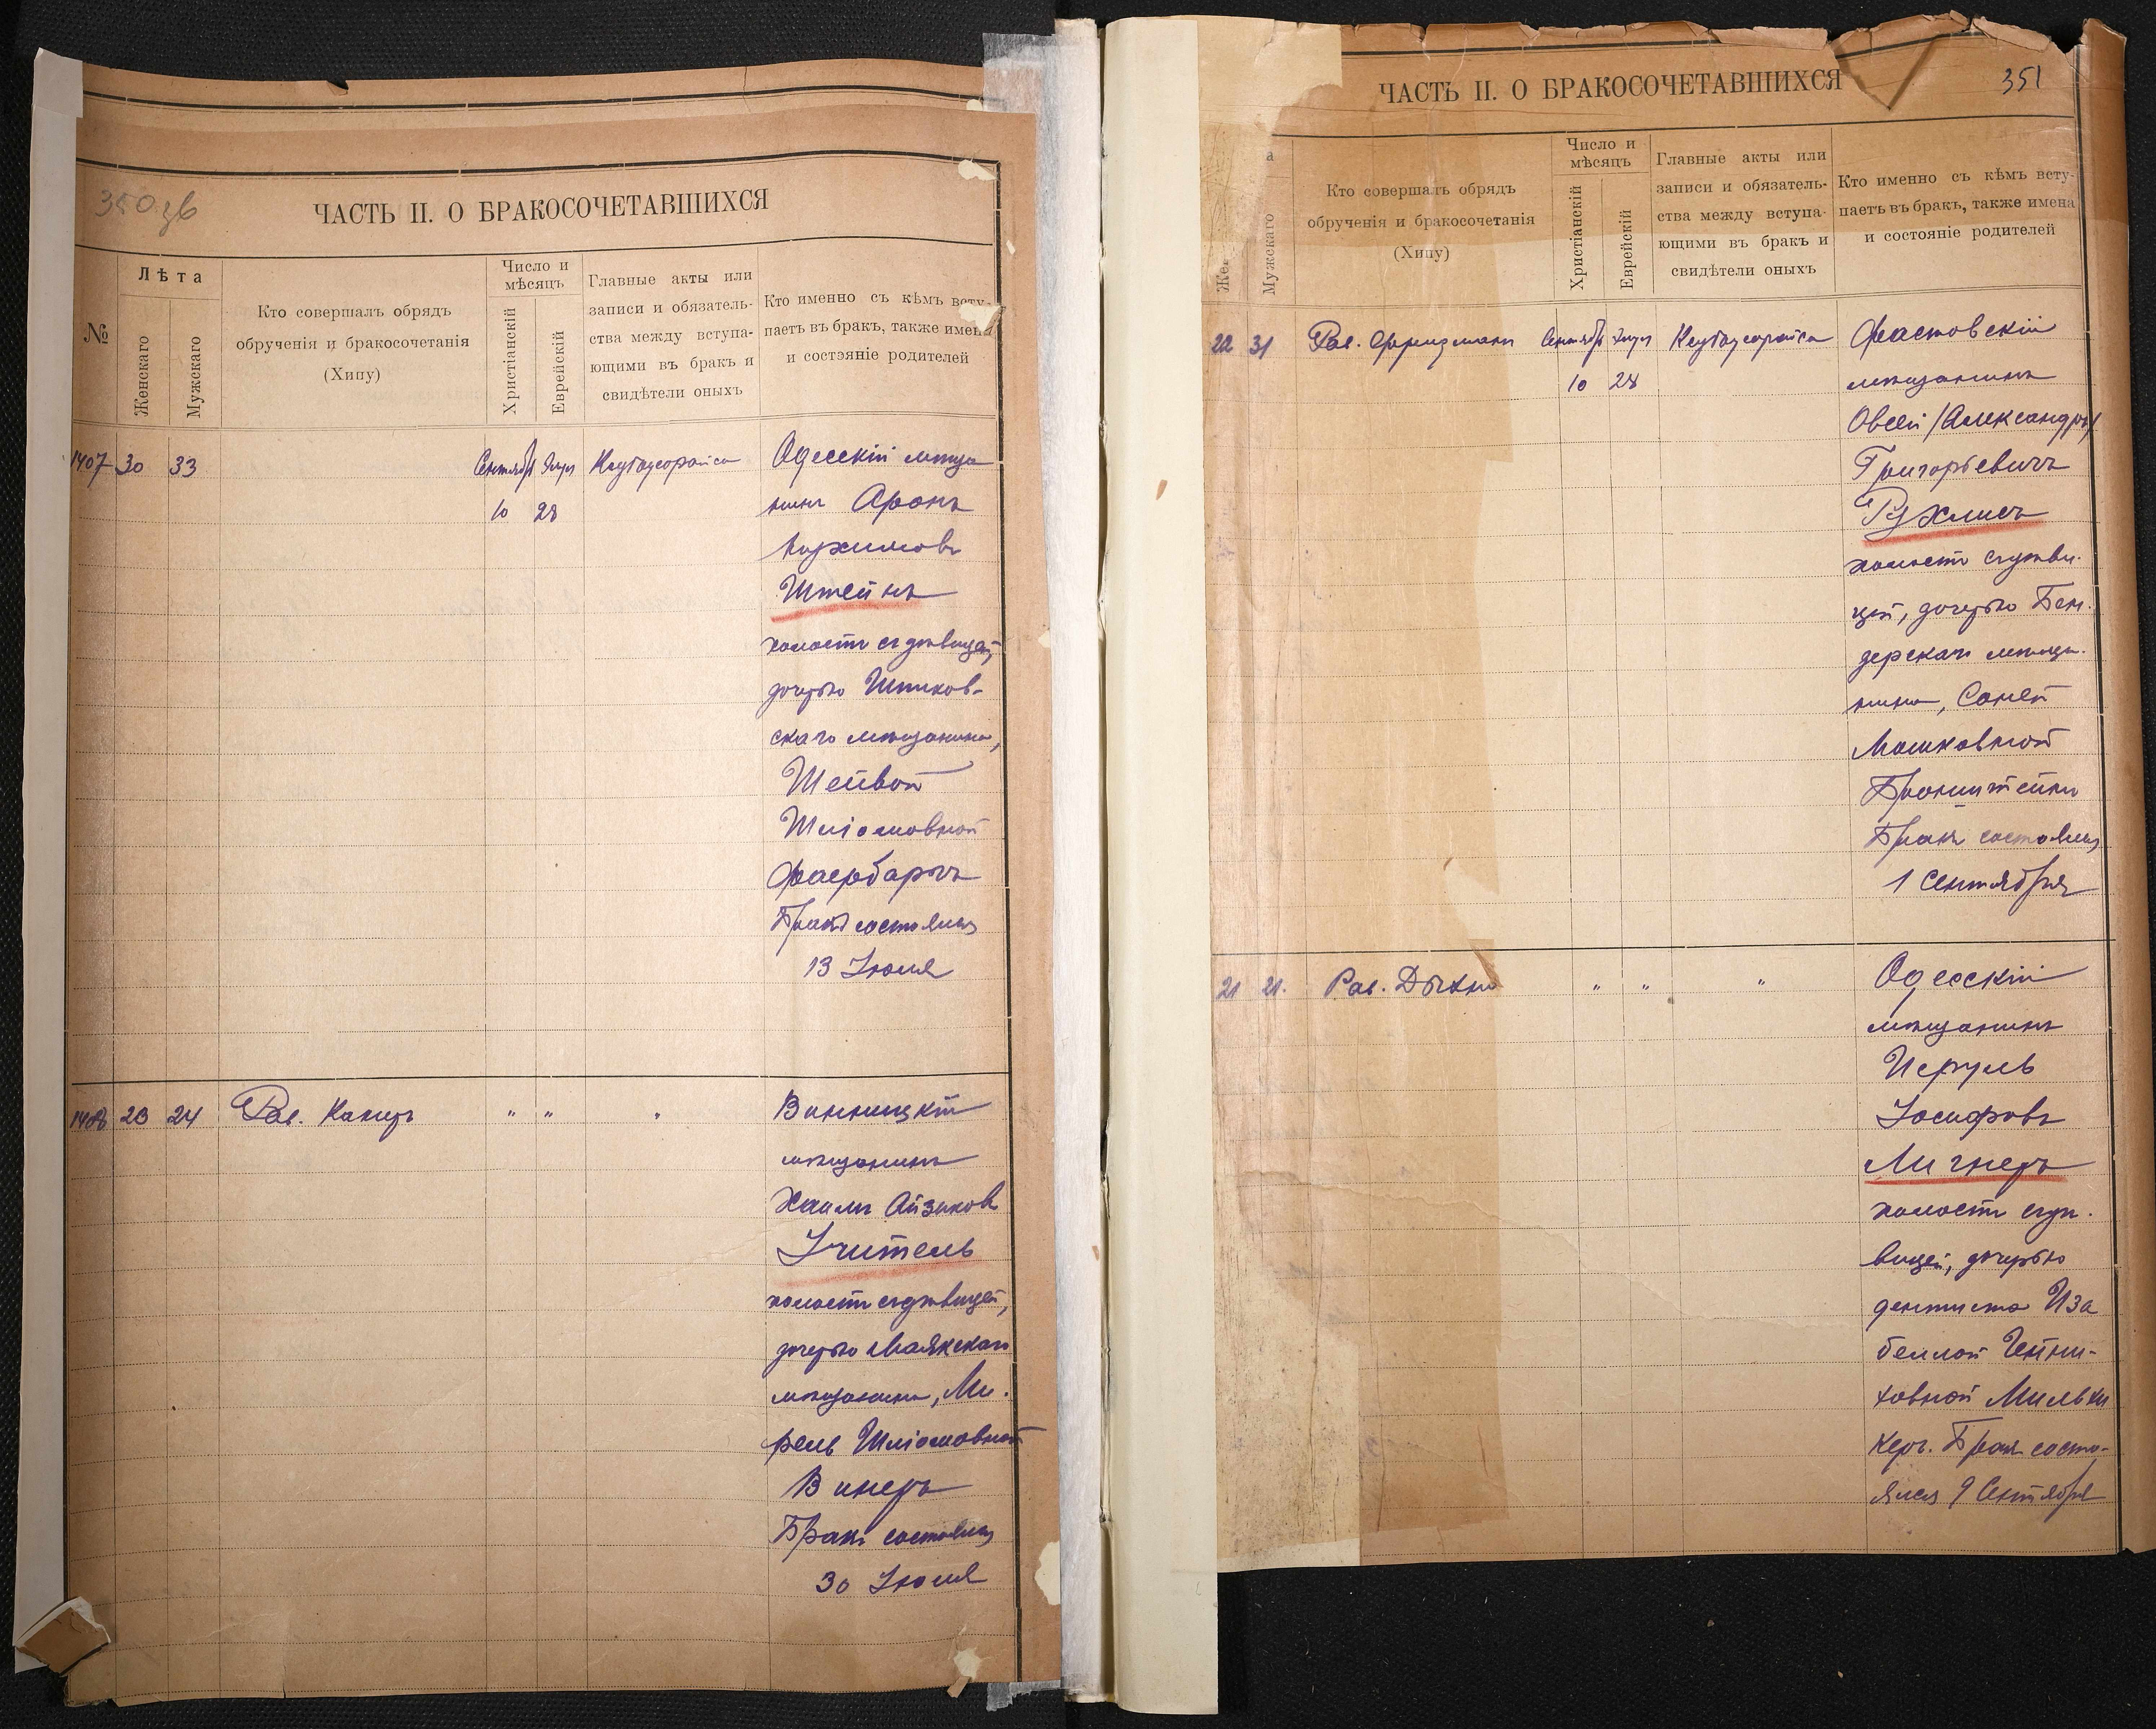 350 зв
ЧАСТЬ II. О БРАКОСОЧЕТАВШИХСЯ
№
Лѣта
Женскаго
Мужскаго
Кто совершалъ обрядъ
обрученія и бракосочетанія
(Хипу)
Число и
мѣсяцъ
Христіанскій
Еврейскій
Главные акты или
записи и обязатель-
ства между вступа-
ющими въ бракъ и
свидѣтели оныхъ
Кто именно съ кѣмъ всту-
паетъ въ бракъ, также имена
и состояніе родителей
1407 30 33 Сентябр Элул
10 28
Одесскій мѣща
нинъ Аронъ
Штейнъ
холостъ съ дѣвицей,
дочерью Шпиков-
скаго мѣщанина,
Шейвой
Шліомовной
Фаербаргъ
Бракъ состоялся
13 Іюля
1408 23 24 Рав. Канцъ " " "
Винницкій
мѣщанинъ
Хаимъ Айзиковъ
Учитель
холостъ съ дѣвицей,
дочерью Маякскаго
мѣщанина, Ми-
рель Шліомовной
Винеръ
Бракъ состоялся
30 Іюля
351
ЧАСТЬ II. О БРАКОСОЧЕТАВШИХСЯ
а
Же
Мужскаго
Кто совершалъ обрядъ
обрученія и бракосочетанія
(Хипу)
Число и
мѣсяцъ
Христіанскій
Еврейскій
Главные акты или
записи и обязатель-
ства между вступа-
ющими въ бракъ и
свидѣтели оныхъ
Кто именно съ кѣмъ всту-
паетъ въ бракъ, также имена
и состояніе родителей
22 31 Рав. Фридманъ Сентябр Элул
10 28
Фастовскій
мѣщанинъ
Овсей /Александръ/
Григорьевичъ
Рухлисъ
холостъ съ дѣви-
цей, дочерью Бен-
дерскаго мѣща-
нина, Соней
Мошковной
Бронштейнъ
Бракъ состоялся
1 Сентября
21 21. Рав. Дыхно " " "
Одесскій
мѣщанинъ
Исруль
Іосифовъ
Лигнеръ
холостъ съ дѣ-
вицей, дочерью
дентиста Иза
беллой Гейни-
ховной Мильхи
керъ. Бракъ состо-
ялся 9 Сентября